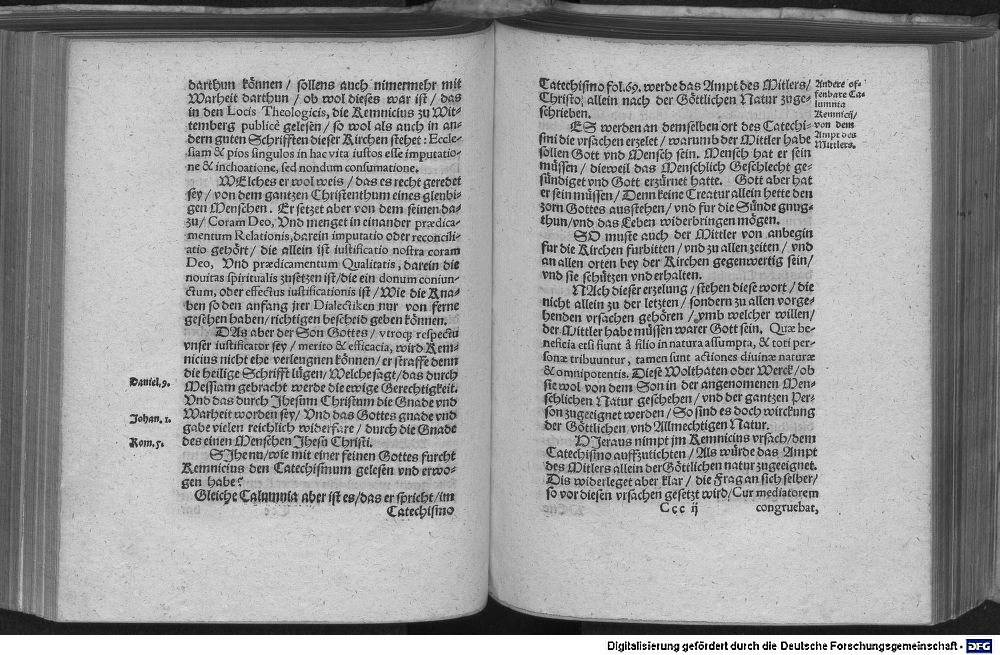 darthun können / sollens auch nimermehr mit
Warheit darthun / ob wol dieses war ist / das
in den Locis Theologicis, die Kemnicius zu Wit-
temberg publicè gelesen / so wol als auch in an-
dern guten Schrifften dieser Kirchen stehet: Eccle-
siam & pios singulos in hac vita iustos esse imputatio-
ne & inchoatione, sed nondum consumatione.
WElches er wol weis / das es recht geredet
sey / von dem gantzen Christenthum eines gleubi-
gen Menschen. Er setzet aber von dem seinen da-
zu / Coram Deo, Vnd menget in einander prædica-
mentum Relationis, darein imputatio oder reconcili-
atio gehört / die allein ist iustificatio nostra coram
Deo, Vnd prædicamentum Qualitatis, darein die
nouitas spiritualis zusetzen ist / die ein donum coniun-
ctum, oder effectus iustificationis ist / Wie die Kna-
ben so den anfang jrer Dialectiken nur von ferne
gesehen haben / richtigen bescheid geben können.
DAs aber der Son Gottes / vtroq; respectu
vnser iustificator sey / merito & efficacia, wird Kem-
nicius nicht ehe verleugnen können / er straffe denn
die heilige Schrifft lügen / Welche sagt / das durch
Daniel. 9.
Messiam gebracht werde die ewige Gerechtigkeit.
Vnd das durch Jhesum Christum die Gnade vnd
Johan. 1.
Warheit worden sey / Vnd das Gottes gnade vnd
gabe vielen reichlich widerfare / durch die Gnade
Rom. 5.
des einen Menschen Jhesu Christi.
SJhe nu / wie mit einer feinen Gottes furcht
Kemnicius den Catechismum gelesen vnd erwo-
gen habe?
Gleiche Calumnia aber ist es / das er spricht / im
Catechismo
Catechismo fol. 69. werde das Ampt des Mitlers /
Christo, allein nach der Göttlichen Natur zuge-
schrieben.
Andere of-
fenbare Ca-
lumnia
Kemnicij /
von dem
Ampt des
Mittlers.
ES werden an demselben ort des Catechi-
smi die vrsachen erzelet / warumb der Mittler habe
sollen Gott vnd Mensch sein. Mensch hat er sein
müssen / dieweil das Menschlich Geschlecht ge-
sündiget vnd Gott erzürnet hatte. Gott aber hat
er sein müssen / Denn keine Creatur allein hette den
zorn Gottes ausstehen / vnd fur die Sünde gnug-
thun / vnd das Leben widerbringen mögen.
SO muste auch der Mittler von anbegin
fur die Kirchen furbitten / vnd zu allen zeiten / vnd
an allen orten bey der Kirchen gegenwertig sein /
vnd sie schützen vnd erhalten.
NAch dieser erzelung / stehen diese wort / die
nicht allein zu der letzten / sondern zu allen vorge-
henden vrsachen gehören / vmb welcher willen /
der Mittler habe müssen warer Gott sein. Quæ be-
neficia etsi fiunt à filio in natura assumpta, & toti per-
sonæ tribuuntur, tamen sunt actiones diuinæ naturæ
& omnipotentis. Diese Wolthaten oder Werck / ob
sie wol von dem Son in der angenomenen Men-
schlichen Natur geschehen / vnd der gantzen Per-
son zugeeignet werden / So sind es doch wirckung
der Göttlichen vnd Allmechtigen Natur.
HJeraus nimpt jm Kemnicius vrsach / dem
Catechismo auffzutichten / Als würde das Ampt
des Mitlers allein der Göttlichen natur zugeeignet.
Dis widerleget aber klar / die Frag an sich selber /
so vor diesen vrsachen gesetzt wird / Cur mediatorem
Ccc ij
congruebat,
Digitalisierung gefördert durch die Deutsche Forschungsgemeinschaft - DFG